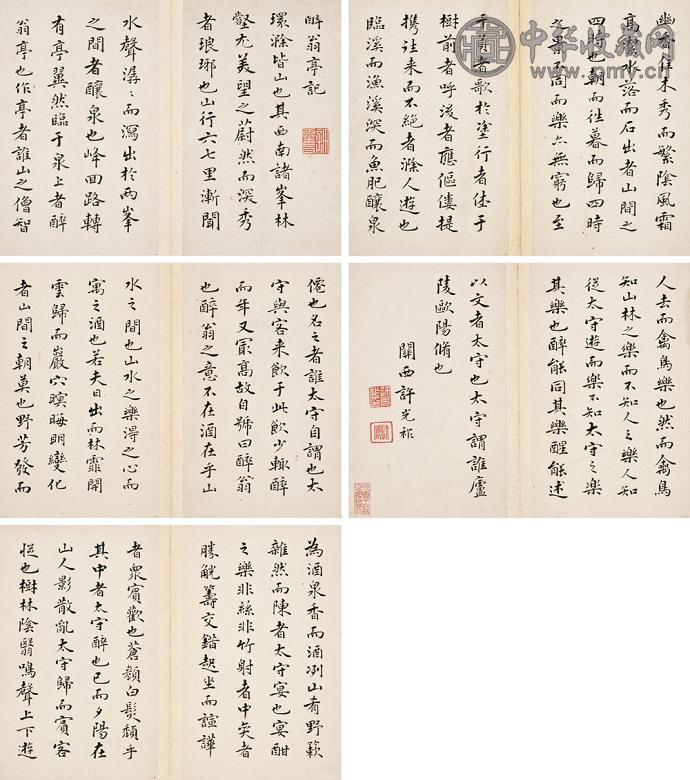 醉翁亭記
環滁皆山也其西南諸峯林
壑尤美望之蔚然而深秀
者琅琊也山行六七里漸聞
水聲潺〻而瀉出於兩峯
之間者釀泉也峰回路轉
有亭翼然臨于泉上者醉
翁亭也作亭者誰山之僧智
僊也名之者誰太守自謂也太
守與客来飲于此飲少輒醉
而年又冣高故自號曰醉翁
也醉翁之意不在酒在乎山
水之間也山水之樂得之心而
寓之酒也若夫日出而林霏開
雲歸而巖穴暝晦明變化
者山間之朝莫也野芳發而
幽香佳木秀而繁陰風霜
高潔水落而石出者山間之
四時也朝而往暮而歸四時
之景不同而樂亦無窮也至
于負者歌於塗行者休于
樹前者呼後者應傴僂提
携往来而不絕者滁人遊也
臨溪而漁溪深而魚肥釀泉
為酒泉香而酒冽山肴野蔌
雜然而陳者太守宴也宴酣
之樂非絲非竹射者中奕者
勝觥籌交錯起坐而諠譁
者眾賓歡也蒼顏白髮頹乎
其中者太守醉也已而夕陽在
山人影散亂太守歸而賓客
從也樹林陰翳鳴聲上下遊
人去而禽鳥樂也然而禽鳥
知山林之樂而不知人之樂人知
從太守遊而樂不知太守之樂
其樂也醉能同其樂醒能述
以文者太守也太守謂誰廬
陵歐陽脩也
關西許光祚
中华收藏网
www.pmy.cn